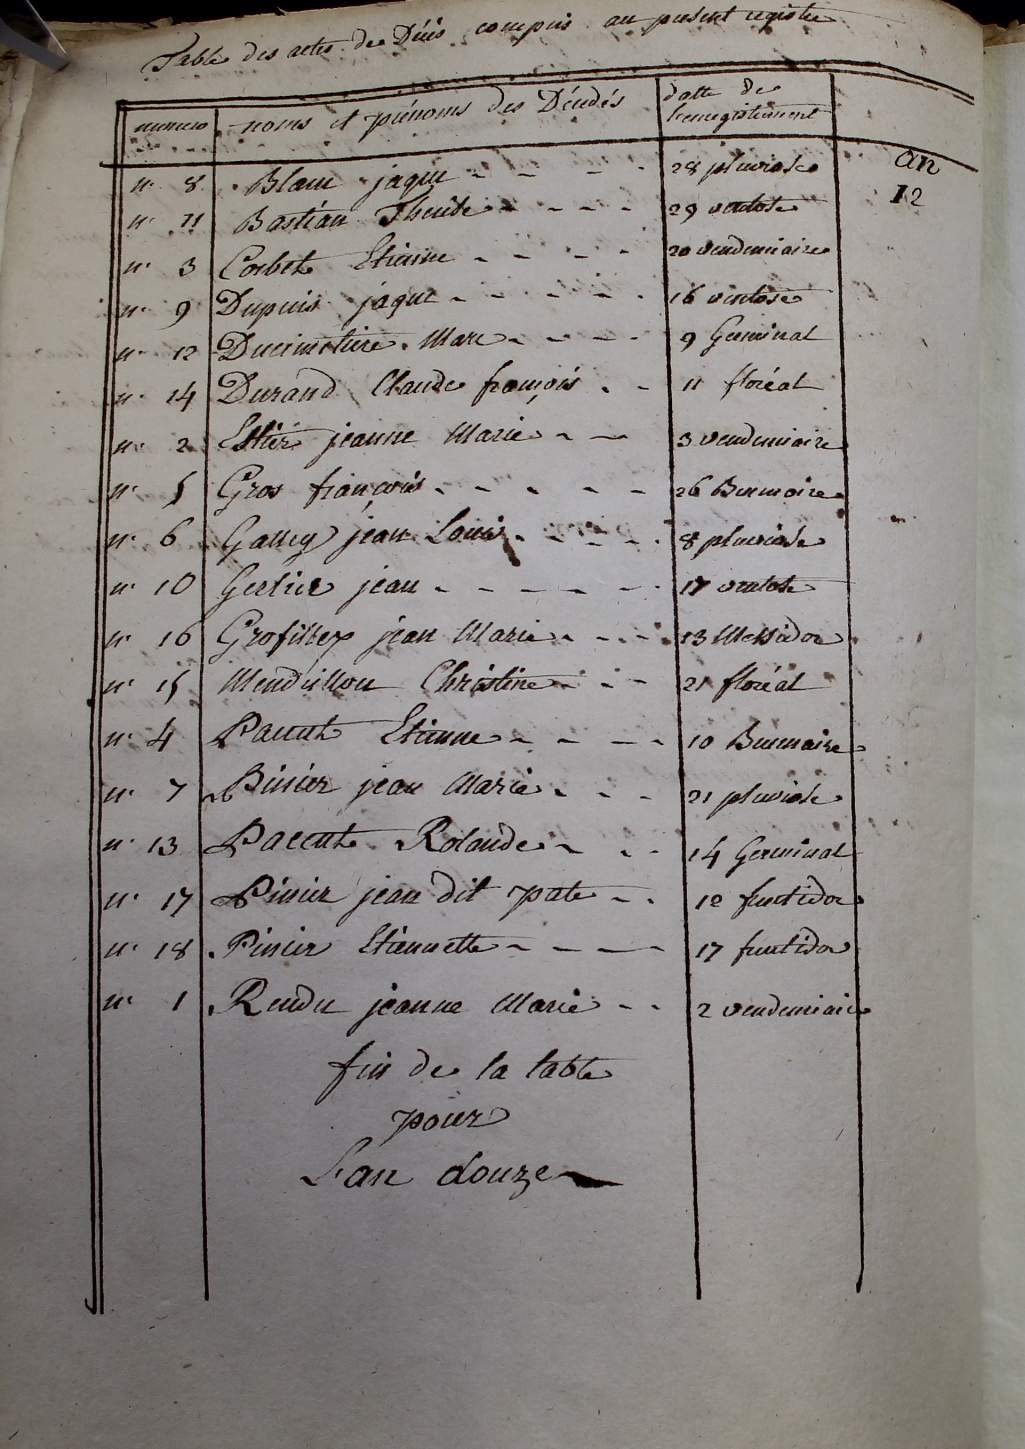 Table des actes de Décès compris au present registre
numero noms et prénoms des Décédés datte de l'enregistrement
an 12
n° 8 Blanc jaque 28 pluviose
n° 11 Bastian 29 ventose
n° 3 Corbet Etienne 20 vendemiaire
n° 9 Dupuis jaque 16 ventose
n° 12 Ducimetiere Marc 9 Germinal
n° 14 Durand Claude françois 11 floréal
n° 2 Estier jeanne Marie 3 vendemiaire
n° 5 Gros françois 26 Brumaire
n° 6 jean Louis 8 pluviose
n° 10 Gerlier jean 17 ventose
n° 16 Grosfilley jean Marie 13 Messidor
n° 15 Christine 21 floréal
n° 4 Paccut Etienne 10 Brumaire
n° 7 Pinier jean Marie 21 pluviose
n° 13 Paccut Rolande 14 Germinal
n° 17 Pinier jean dit pate 12 fructidor
n° 18 Pinier Etiennette 17 fructidor
n° 1 Rendu jeanne Marie 2 vendemiaire
fin de la table
pour
L'an douze